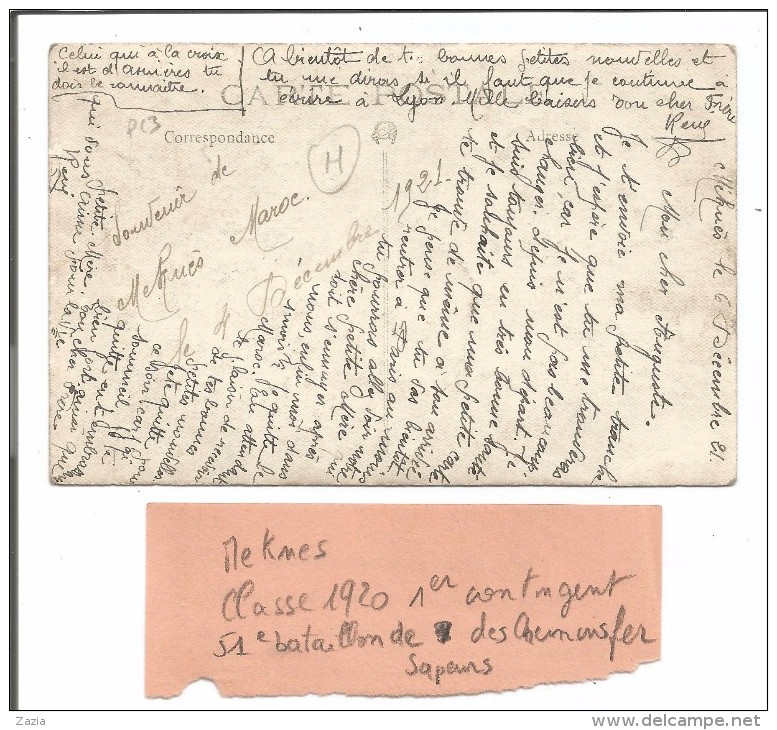 Celui qui à la croix
il est d'Asnières tu
dois le connaitre.
A bientôt de t. bonnes petites nouvelles et
tu me diras si il faut que je continue à
écrire à Lyon. Mille baisers ton cher frère
René
CARTE POSTALE
Correspondance
Adresse
P13
H
Souvenir de
Meknès Maroc.
le 4 Décembre 1921.
Meknès le 6 Décembre 21.
Mon cher Auguste.
Je t'envoie ma petite tranche
et j'espère que tu me trouveras
bien, car je n'est pas beaucoup
changer depuis mon départ. Je
suis toujours en très bonne santé
et je souhaite que ma petite carte
te trouve de même à son arrivée
Je pense que tu vas bientôt
rentrer à Paris au moins
tu pourrais aller voir notre
chère petite Mère qui
doit s'ennuyer après
nous, enfin moi dans
mois je quitte le
Maroc. J'ai attend
le plaisir de recevoir
de tes bonnes
petites nouvelles
Je te quitte
ce soir car j'ai
sommeil
Petite Mère bien
quitte en t'embra
fort
ton cher frère
qui vous aime pour la vie
René
Meknes
Classe 1920 1er contingent
51e bataillon de des Chemins fer
Sapeurs
Zazia
www.delcampe.net